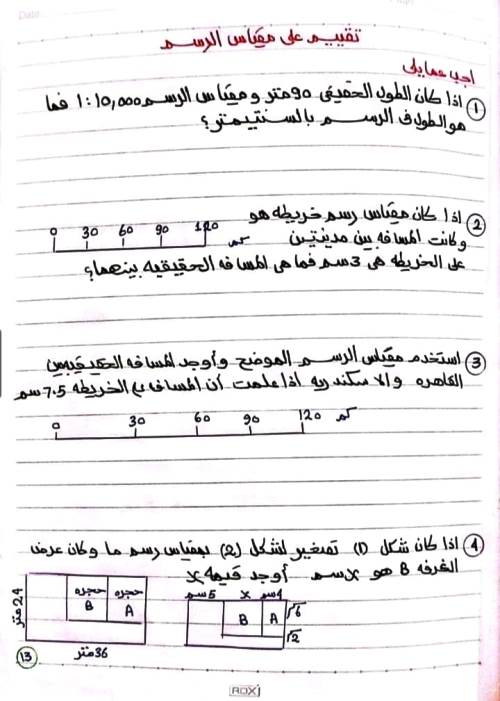 Date
تقييم على مقياس الرسم
اجب عما يلى
① اذا كان الطول الحقيقى 90 متر و مقياس الرسم 1:10,000 فما
هو الطول فى الرسم بالسنتيمتر؟
② اذا كان مقياس رسم خريطه هو
0 30 60 90 120 كم
وكانت المسافه بين مدينتين
على الخريطه هى 3 سم فما هى المسافه الحقيقيه بينهما؟
③ استخدم مقياس الرسم الموضح وأوجد المسافه الحقيقيه بين
القاهره والاسكندريه اذا علمت أن المسافه على الخريطه 7.5 سم
0 30 60 90 120 كم
④ اذا كان شكل (1) تصغير لشكل (2) بمقياس رسم ما وكان عرض
الغرفه B هو x سم أوجد قيمة x
5 سم x 4 سم
حجره B حجره A
B A
6 سم
2 سم
24 متر
36 متر
13
ROX